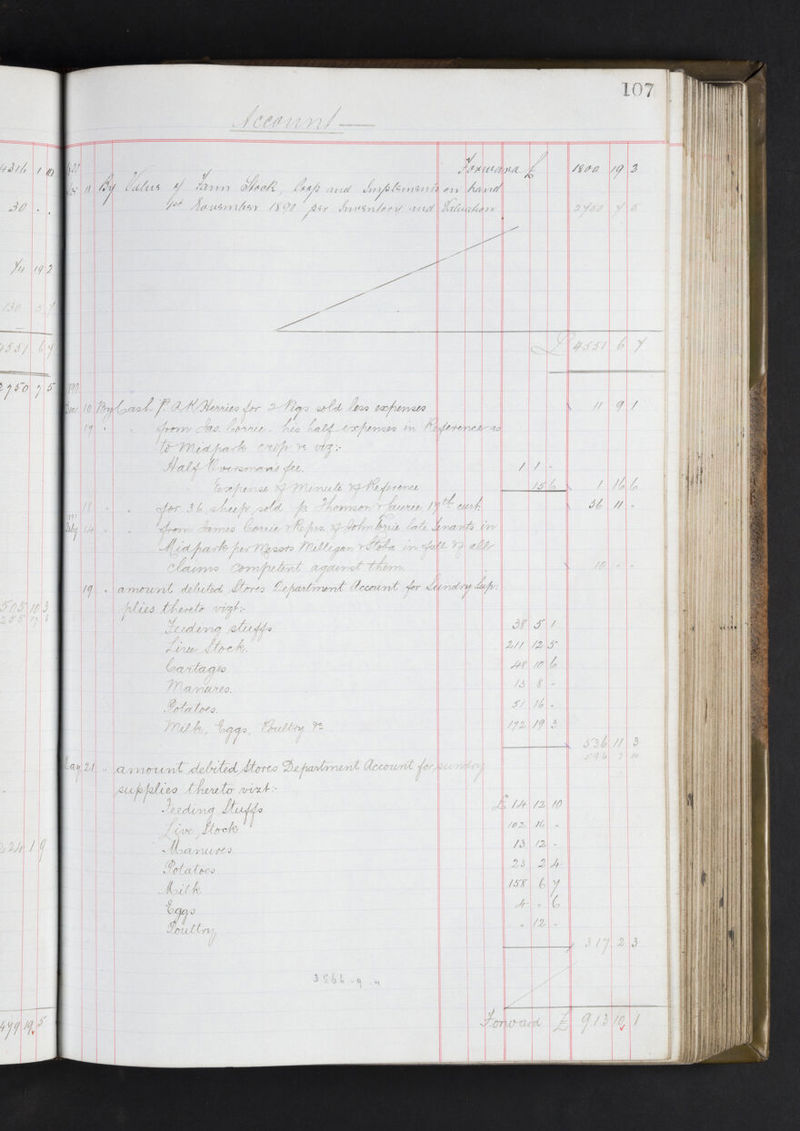 107
Account —
4316 1 10 1890 Forward £ 1800 19 3
Nov 11 By Value of Farm Stock, Crop and Implements on hand
30 . . 1st November 1890 per Inventory and Valuation 2750 7 5
74 19 2
130 5 7
4551 6 7 £ 4551 6 7
2750 7 5 1890
Dec 10 By Cash P. & H Herries for 2 Pigs sold less expenses 11 9 1
17 " . from Jas. Corrie his half expenses in Reference as
to Midpark crop &c viz:-
Half Oversman's fee. 1 1 -
Expense of Minute of Reference 15 6 1 16 6
11 " . for 36 sheep sold p Thomson & Laurie, 17th curt 36 11 -
1891
Feby 14 " . from James Corrie & Reprs of John Corrie late tenants in
Midpark per Messrs Milligan & in full of all
claims competent against them. 10 - -
19 . amount debited Stores Department Account for Sundry Sup-
505 10 3 plies thereto vizt:-
Feeding stuffs 38 5 1
Live Stock. 211 12 5
Cartages 48 10 6
Manures. 13 8 -
Potatoes. 51 16 -
Milk, Eggs, Poultry &c 172 19 3
536 11 3
May 21 . amount debited Stores Department Account for sundry
supplies thereto vizt:-
Feeding Stuffs £ 14 12 10
Live Stock 102 16 -
224 1 9 Manures 13 12 -
Potatoes 23 2 4
Milk 158 6 7
Eggs 4 - 6
Poultry - 12 -
317 2 3
3566 . 9 . "
479 19 5 Forward £ 913 10 1